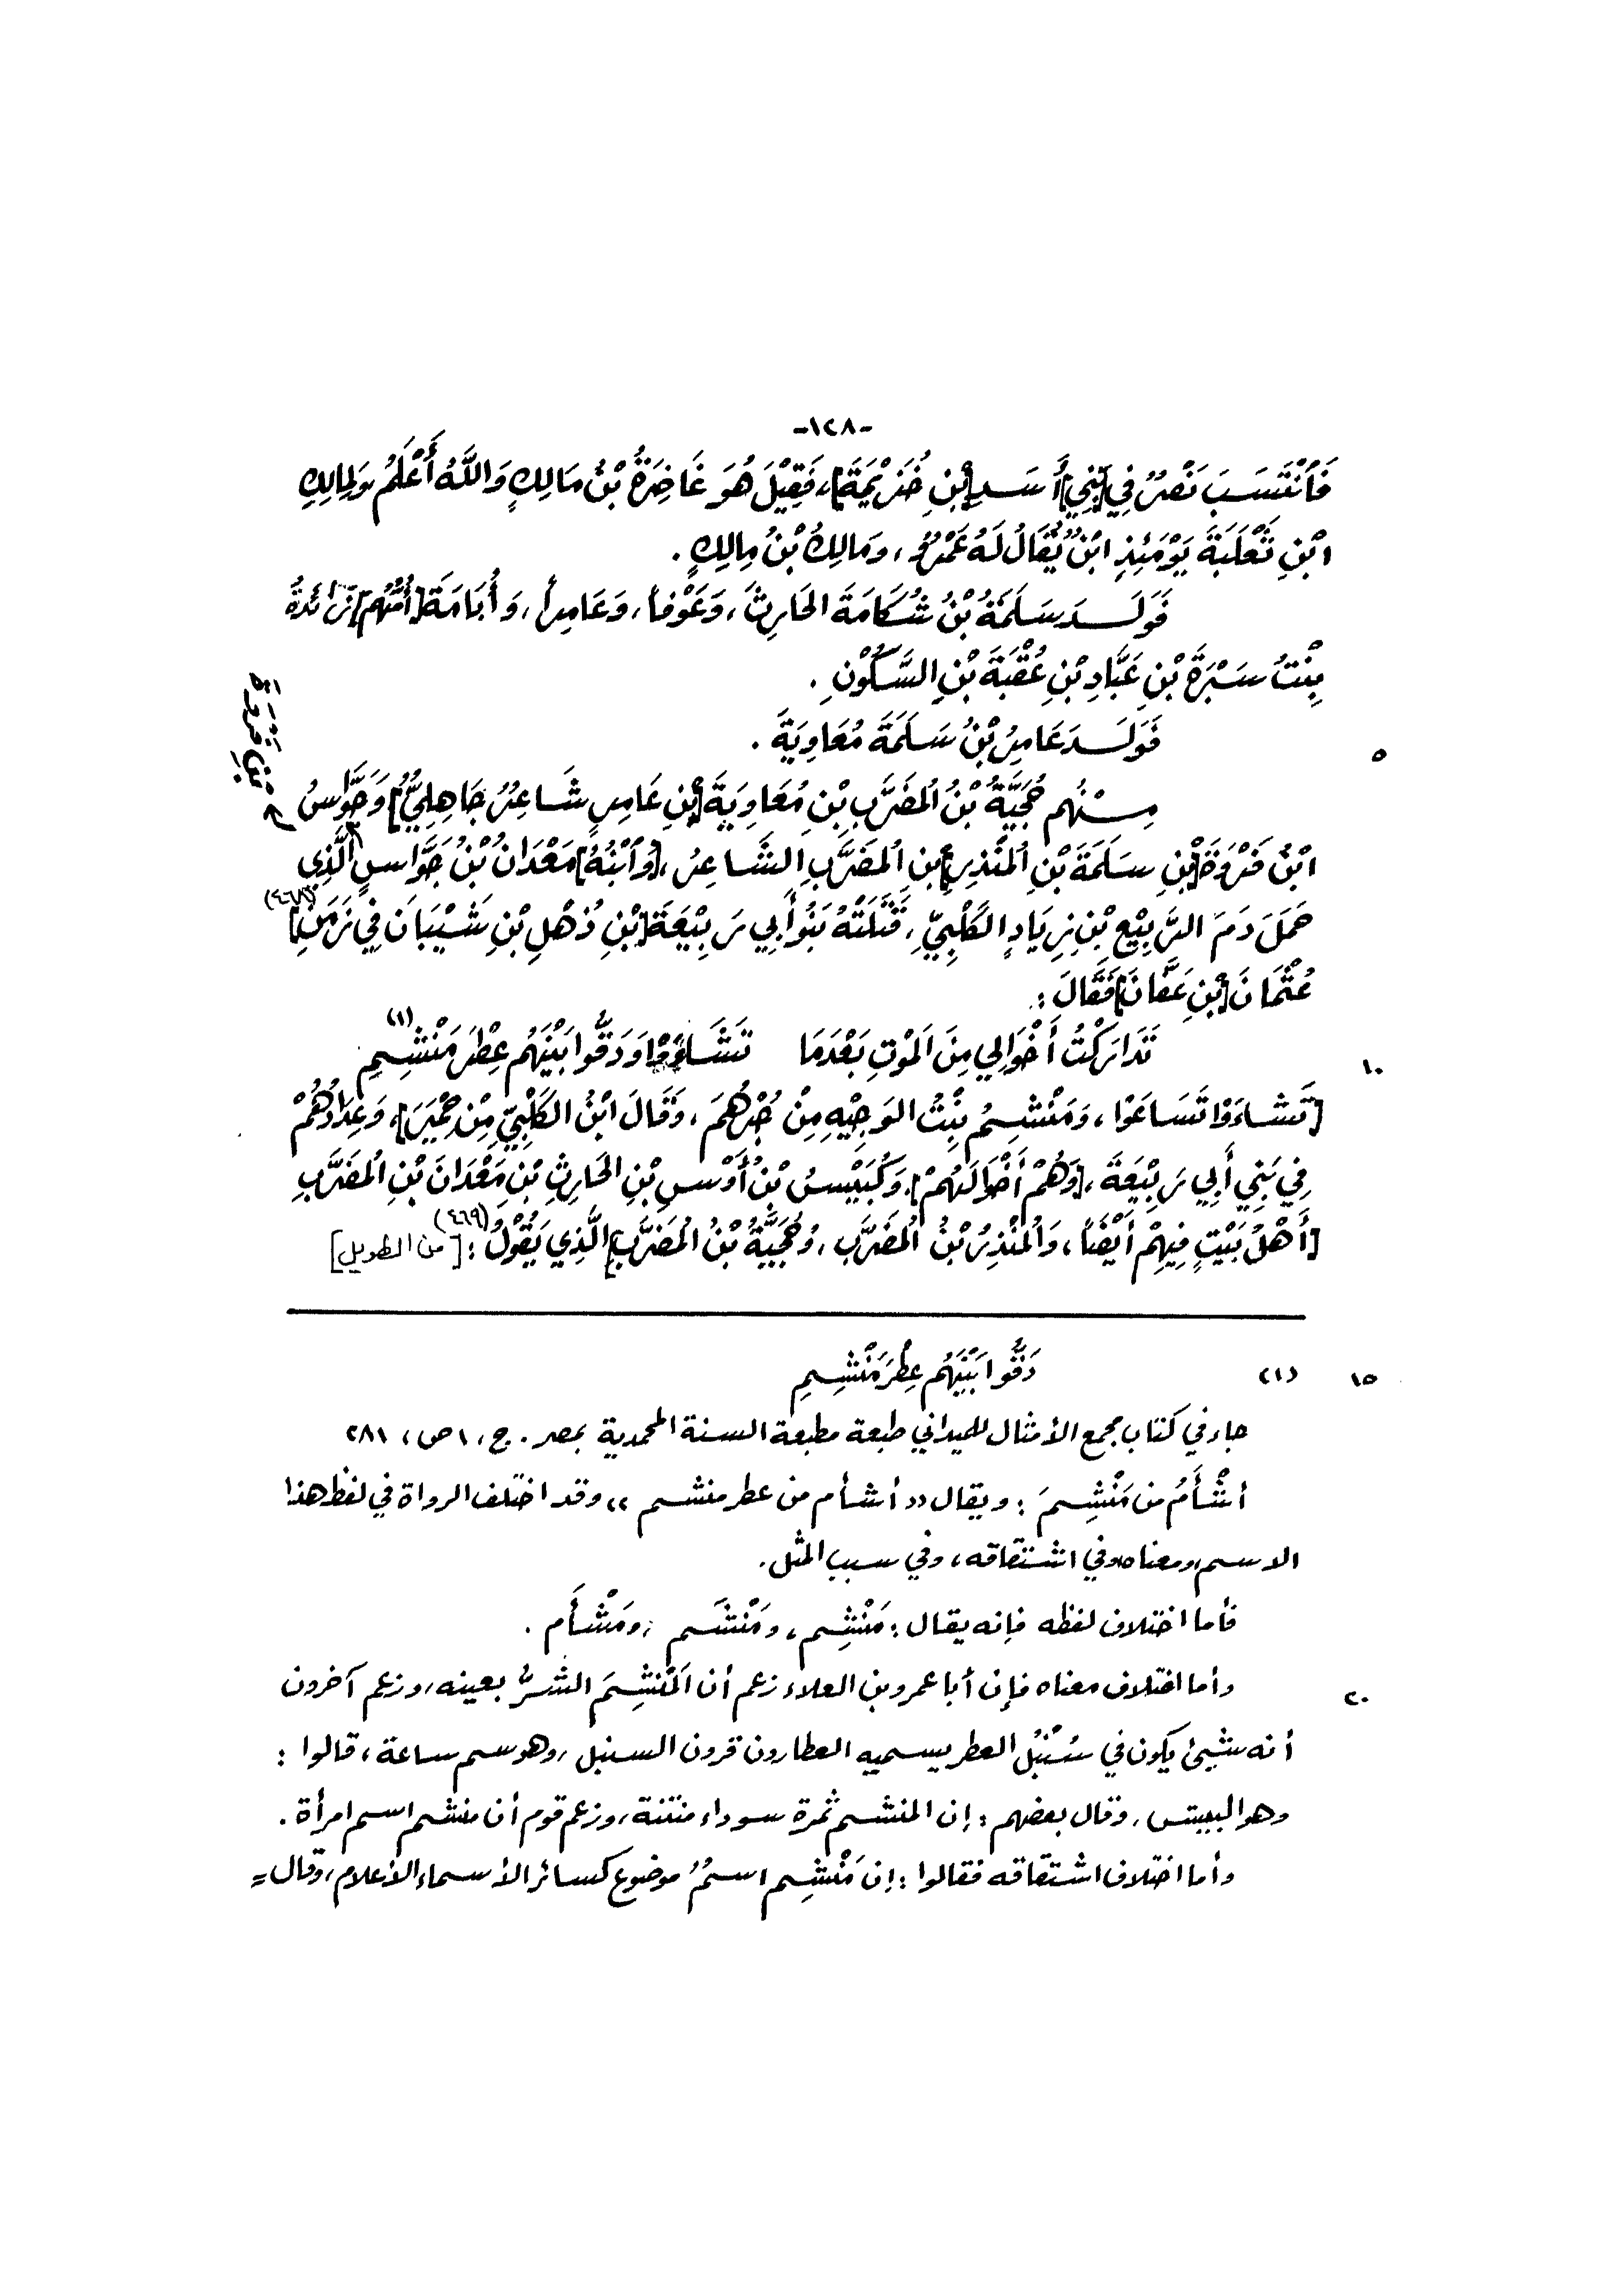 -١٢٨-
فَٱنْتَسَبَ نَصْرٌ فِي [بَنِي] أَسَدِ [بْنِ خُزَيْمَةَ]، فَقِيْلَ هُوَ غَاضِرَةُ بْنُ مَالِكٍ وَاللَّهُ أَعْلَمُ وَلِمَالِكِ
ابْنِ ثَعْلَبَةَ يَوْمَئِذٍ ابْنٌ يُقَالُ لَهُ عَمْرٌو، وَمَالِكُ بْنُ مَالِكٍ.
فَوَلَدَ سَلَمَةُ بْنُ شُكَامَةَ الحَارِثَ، وَعَوْفاً، وَعَامِراً، وَأُبَامَةَ [أُمُّهُم] زَائِدَةُ
بِنْتُ سَبْرَةَ بْنِ عَبَّادِ بْنِ عُقْبَةَ بْنِ السَّكُوْنِ.
٥ فَوَلَدَ عَامِرُ بْنُ سَلَمَةَ مُعَاوِيَةَ.
مِنْهُم حُجَيَّةُ بْنُ المُضَرَّبِ بْنِ مُعَاوِيَةَ [بْنِ عَامِرٍ شَاعِرٌ جَاهِلِيٌّ] وَجَوَّاسُ
ابْنُ فَرْوَةَ [بْنِ سَلَمَةَ بْنِ المُنْذِرِ] بْنِ المُضَرَّبِ الشَّاعِرُ، [وَٱبْنُهُ] مَعْدَانُ بْنُ جَوَّاسٍ الَّذِي
بْنِ فَرْوَةَ
حَمَلَ دَمَ الرَّبِيْعِ بْنِ زِيَادٍ الكَلْبِيِّ، قَتَلَتْهُ بَنُو أَبِي رَبِيْعَةَ [بْنِ ذُهْلِ بْنِ شَيْبَانَ فِي زَمَنِ] (٤٦٨)
عُثْمَانَ [بْنِ عَفَّانَ] فَقَالَ:
١٠ تَدَارَكْتُ أَخْوَالِي مِنَ المَوْتِ بَعْدَمَا تَشَاءَوْا وَدَقُّوا بَيْنَهُم عِطْرَ مَنْشِمِ (١)
[تَشَاءَوْا تَسَاعَوْا، وَمَنْشِمُ بِنْتُ الوَجِيْهِ مِنْ جُرْهُمَ، وَقَالَ ابْنُ الكَلْبِيِّ مِنْ حِمْيَرَ]، وَعِدَادُهُمْ
فِي بَنِي أَبِي رَبِيْعَةَ، [وَهُمْ أَخْوَالُهُمْ]. وَكُبَيْسُ بْنُ أَوْسِ بْنِ الحَارِثِ بْنِ مَعْدَانَ بْنِ المُضَرَّبِ
[أَهْلُ بَيْتٍ فِيهِمْ أَيْضاً، وَالمُنْذِرُ بْنُ المُضَرَّبِ، وَحُجَيَّةُ بْنُ المُضَرَّبِ] الَّذِي يَقُوْلُ: (٤٦٩) [من الطويل]
١٥ (١) دَقُّوا بَيْنَهُم عِطْرَ مَنْشِمِ
جاء في كتاب مجمع الأمثال للميداني طبعة مطبعة السنة المحمدية بمصر. ج، ١ ص، ٢٨١
أشْأَمُ من مَنْشِمَ: ويقال «أشأم من عطر منشم» وقد اختلف الرواة في لفظ هذا
الاسم ومعناه وفي اشتقاقه، وفي سبب المثل.
فأما اختلاف لفظه فإنه يقال: مَنْشِم، ومَنْشَم، ومَشْأَم.
٢٠ وأما اختلاف معناه فإن أبا عمرو بن العلاء زعم أن المَنْشِمَ الشرُّ بعينه، وزعم آخرون
أنه شيئ يكون في سُنْبُل العطر يسميه العطارون قرون السنبل، وهو سم ساعة، قالوا:
وهو البيش، وقال بعضهم: إن المنشم ثمرة سوداء منتنة، وزعم قوم أن منشم اسم امرأة.
وأما اختلاف اشتقاقه فقالوا: إن مَنْشِم اسمٌ موضوع كسائر الأسماء الأعلام، وقال =